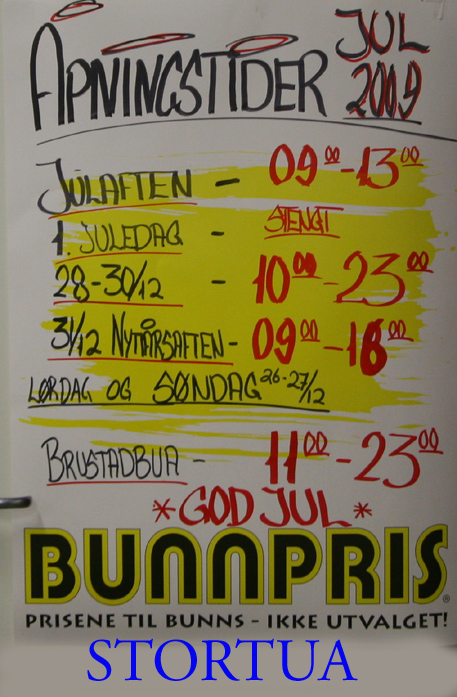 ÅPNINGSTIDER JUL 2009
JULAFTEN - 09 00 - 13 00
1. JULEDAG - STENGT
28-30/12 - 10 00 - 23 00
31/12 NYTTÅRSAFTEN - 09 00 - 16 00
LØRDAG OG SØNDAG 26-27/12
BRUSTADBUA - 11 00 - 23 00
* GOD JUL *
BUNNPRIS®
PRISENE TIL BUNNS - IKKE UTVALGET!
STORTUA